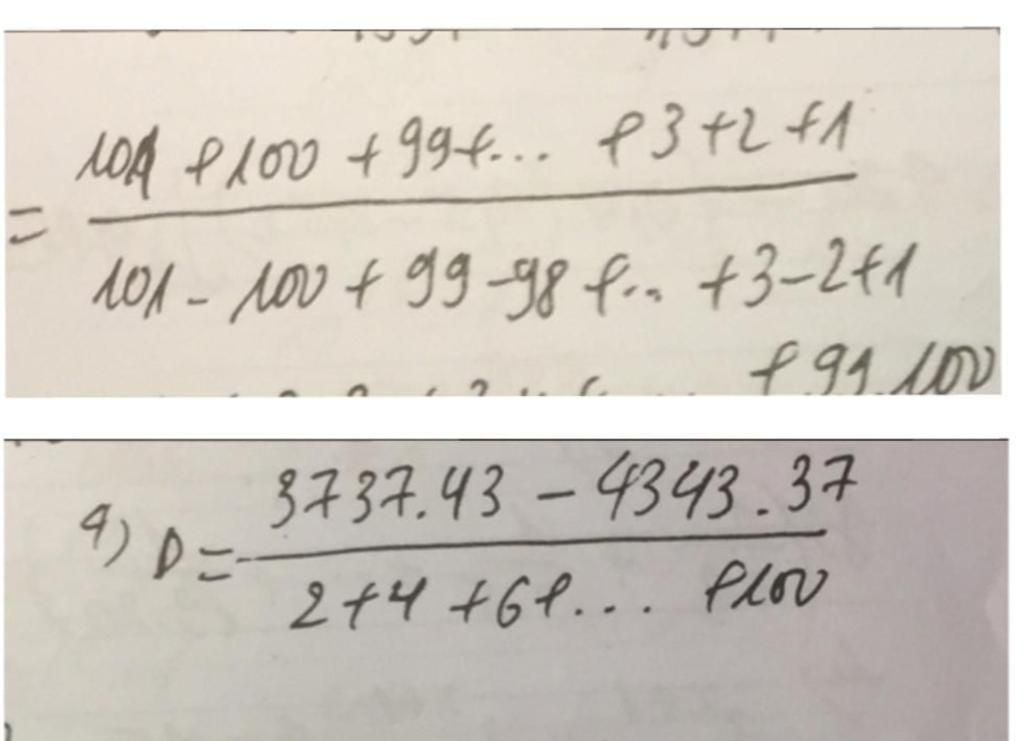 101 + 100 + 99 + ... + 3 + 2 + 1
=
101 - 100 + 99 - 98 + ... + 3 - 2 + 1
+ 99.100
4) D =
3737.43 - 4343.37
2 + 4 + 6 + ... + 100